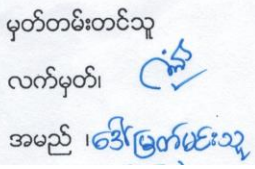 မှတ်တမ်းတင်သူ
လက်မှတ်၊
အမည် ၊ဒေါ်မြတ်မင်းသူ